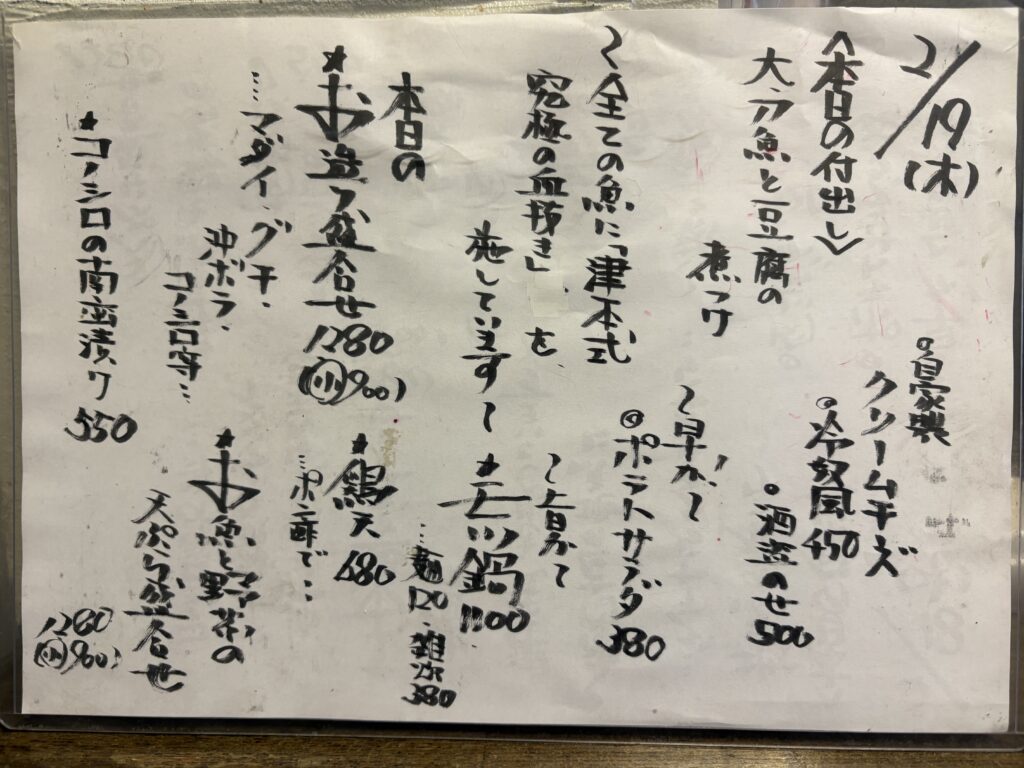 2/19(木)
<本日の付出し>
大刀魚と豆腐の
煮つけ
〜全ての魚に「津本式
究極の血抜き」を
施しています〜
本日の
★お造り盛合せ 1280
(小900)
…マダイ・グチ・
沖ボラ・
コノシロ等…
★コノシロの南蛮漬け 550
◎自家製
クリームチーズ
◎冷奴風 450
◎酒盗のせ 500
〜早が〜
◎ポテトサラダ 380
〜旨が〜
★モツ鍋 1100
…麺120・雑炊380
★鶏天 680
…ポン酢で…
★お魚と野菜の
天ぷら盛合せ
1280
(小900)